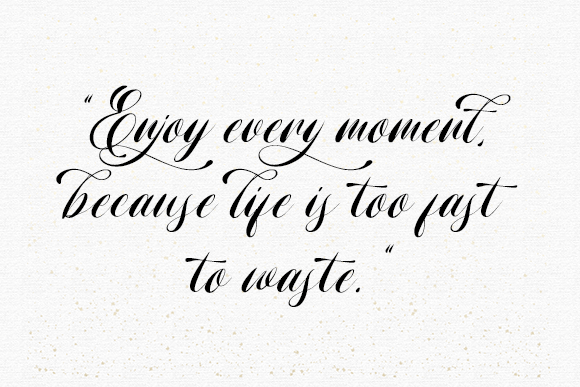 “Enjoy every moment,
because life is too fast
to waste.“